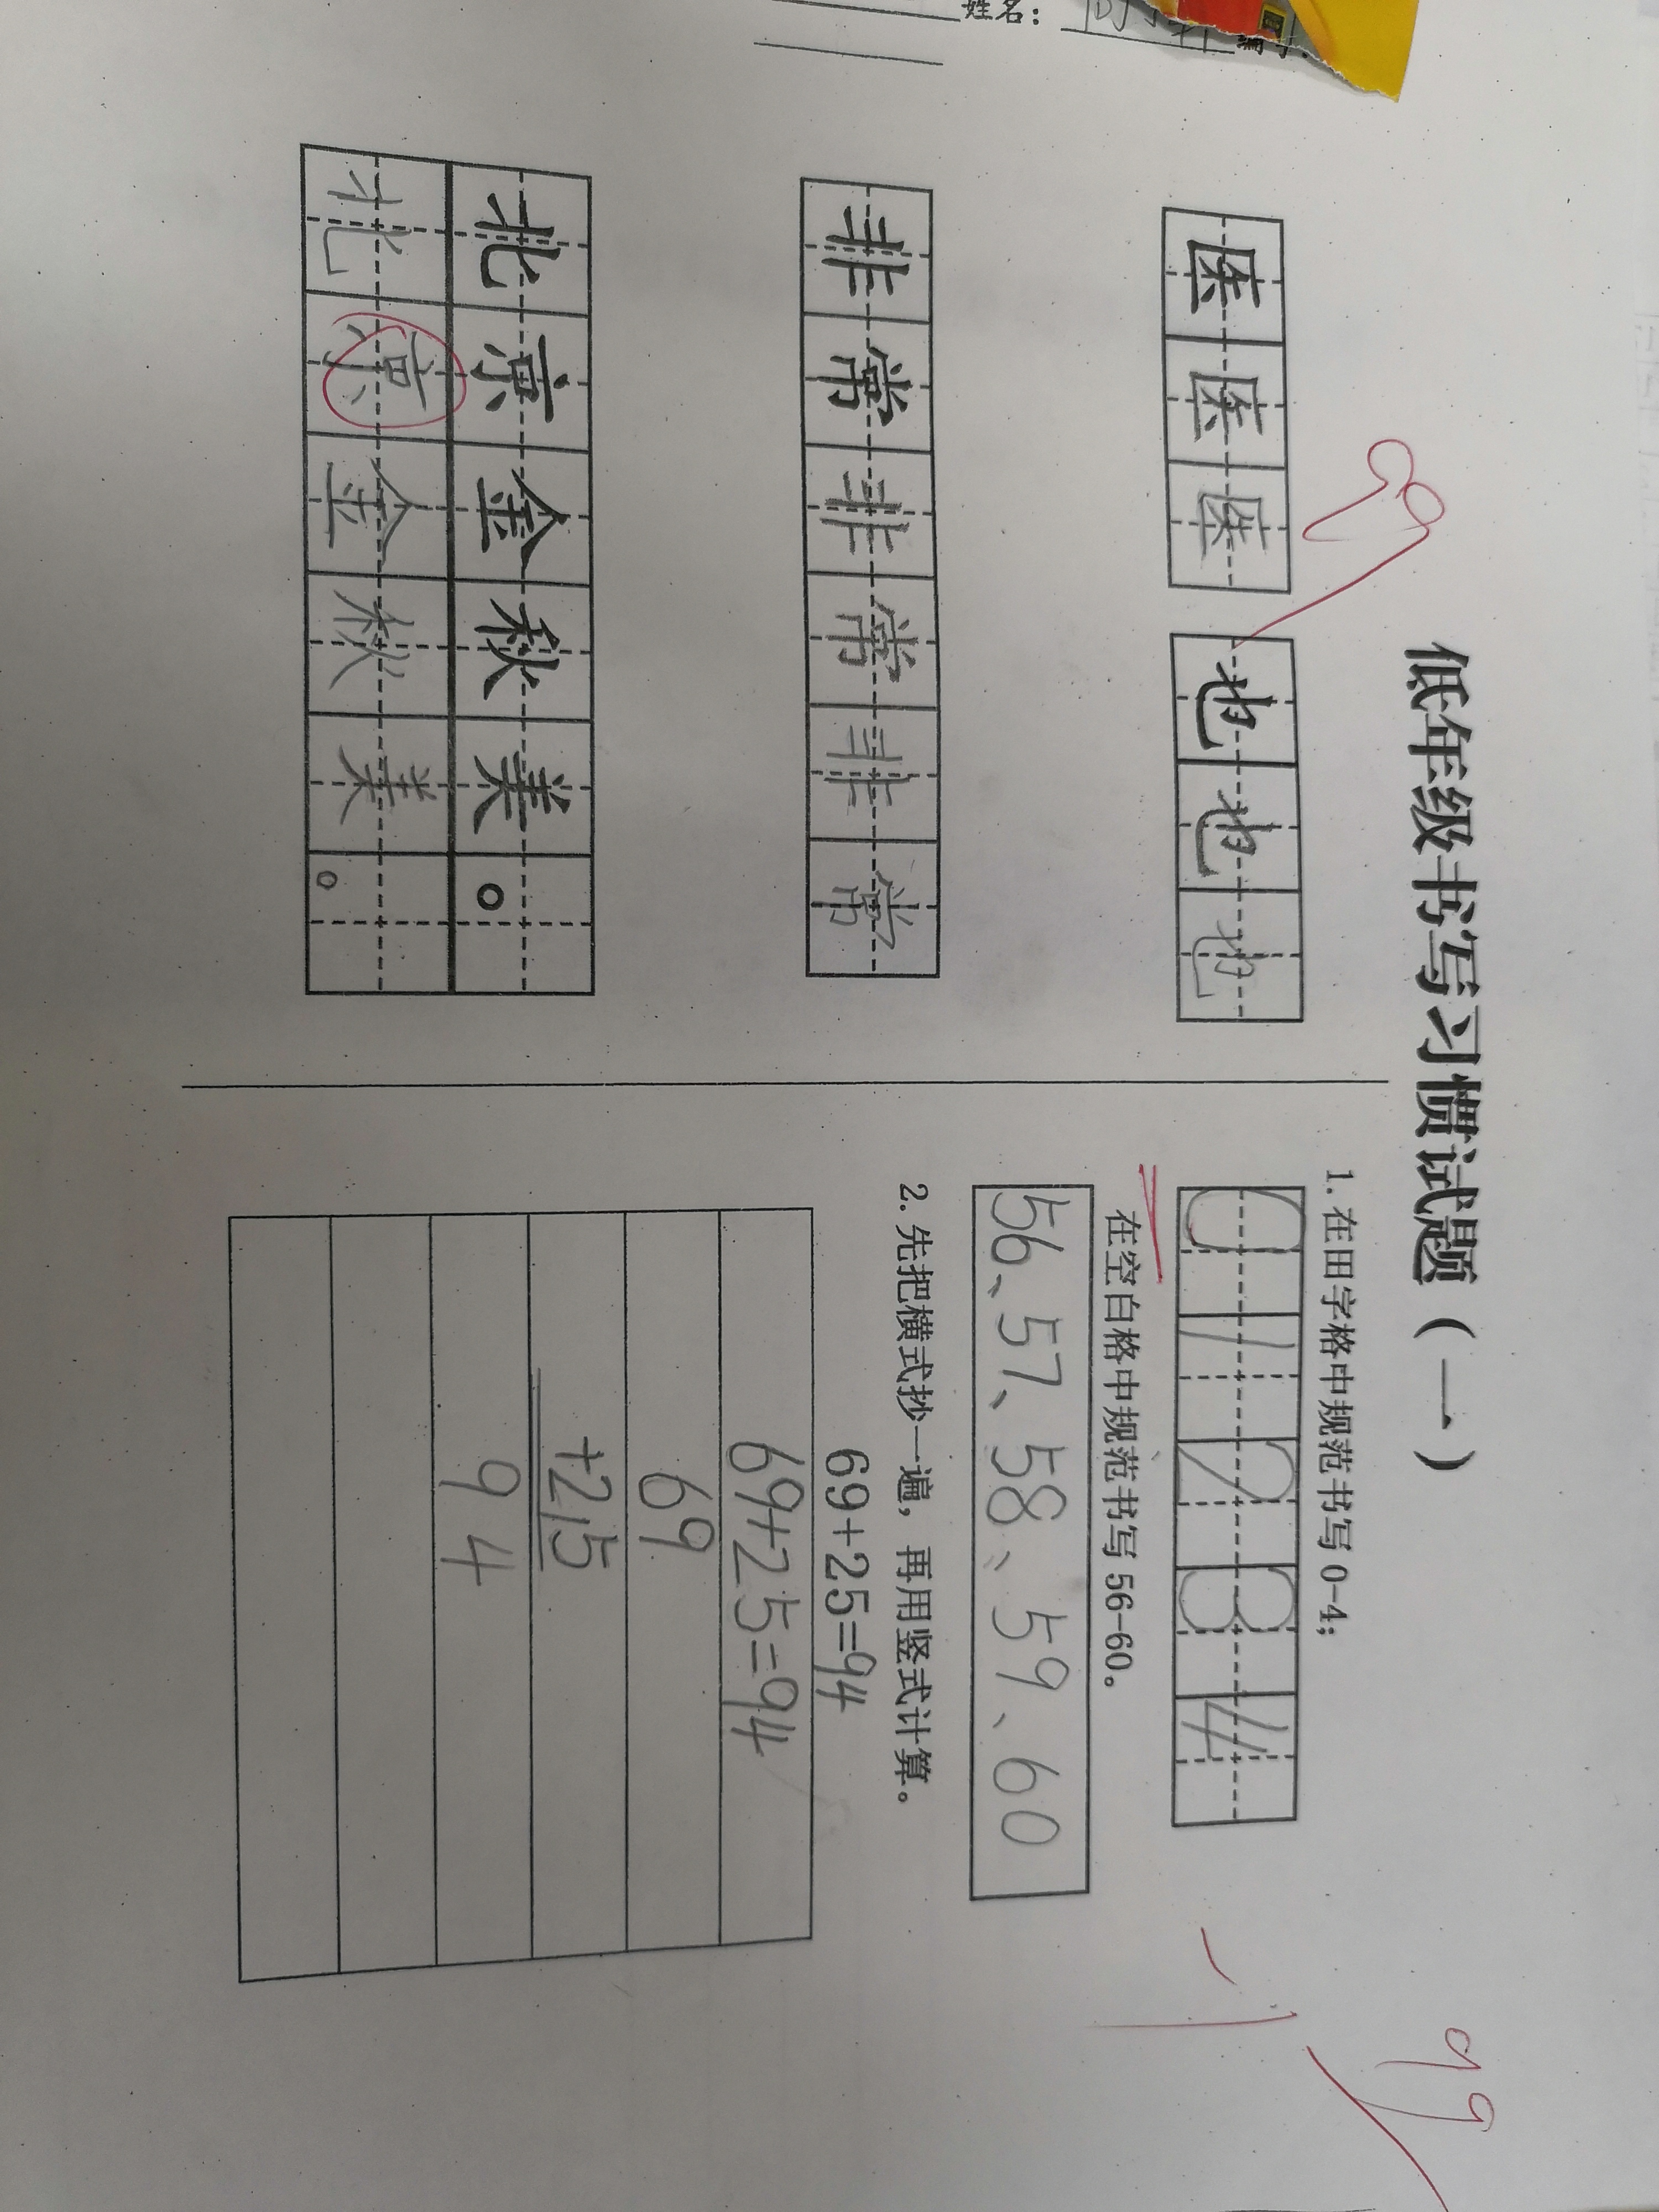 姓名：
低年级书写习惯试题（一）
99
医医医 也也也
非常非常非常
北京金秋美。
北京金秋美。
99
-1
1. 在田字格中规范书写 0-4；
0 1 2 3 4
在空白格中规范书写 56-60。
56、57、58、59、60
2. 先把横式抄一遍，再用竖式计算。
69+25=94
69+25=94
69
+215
94